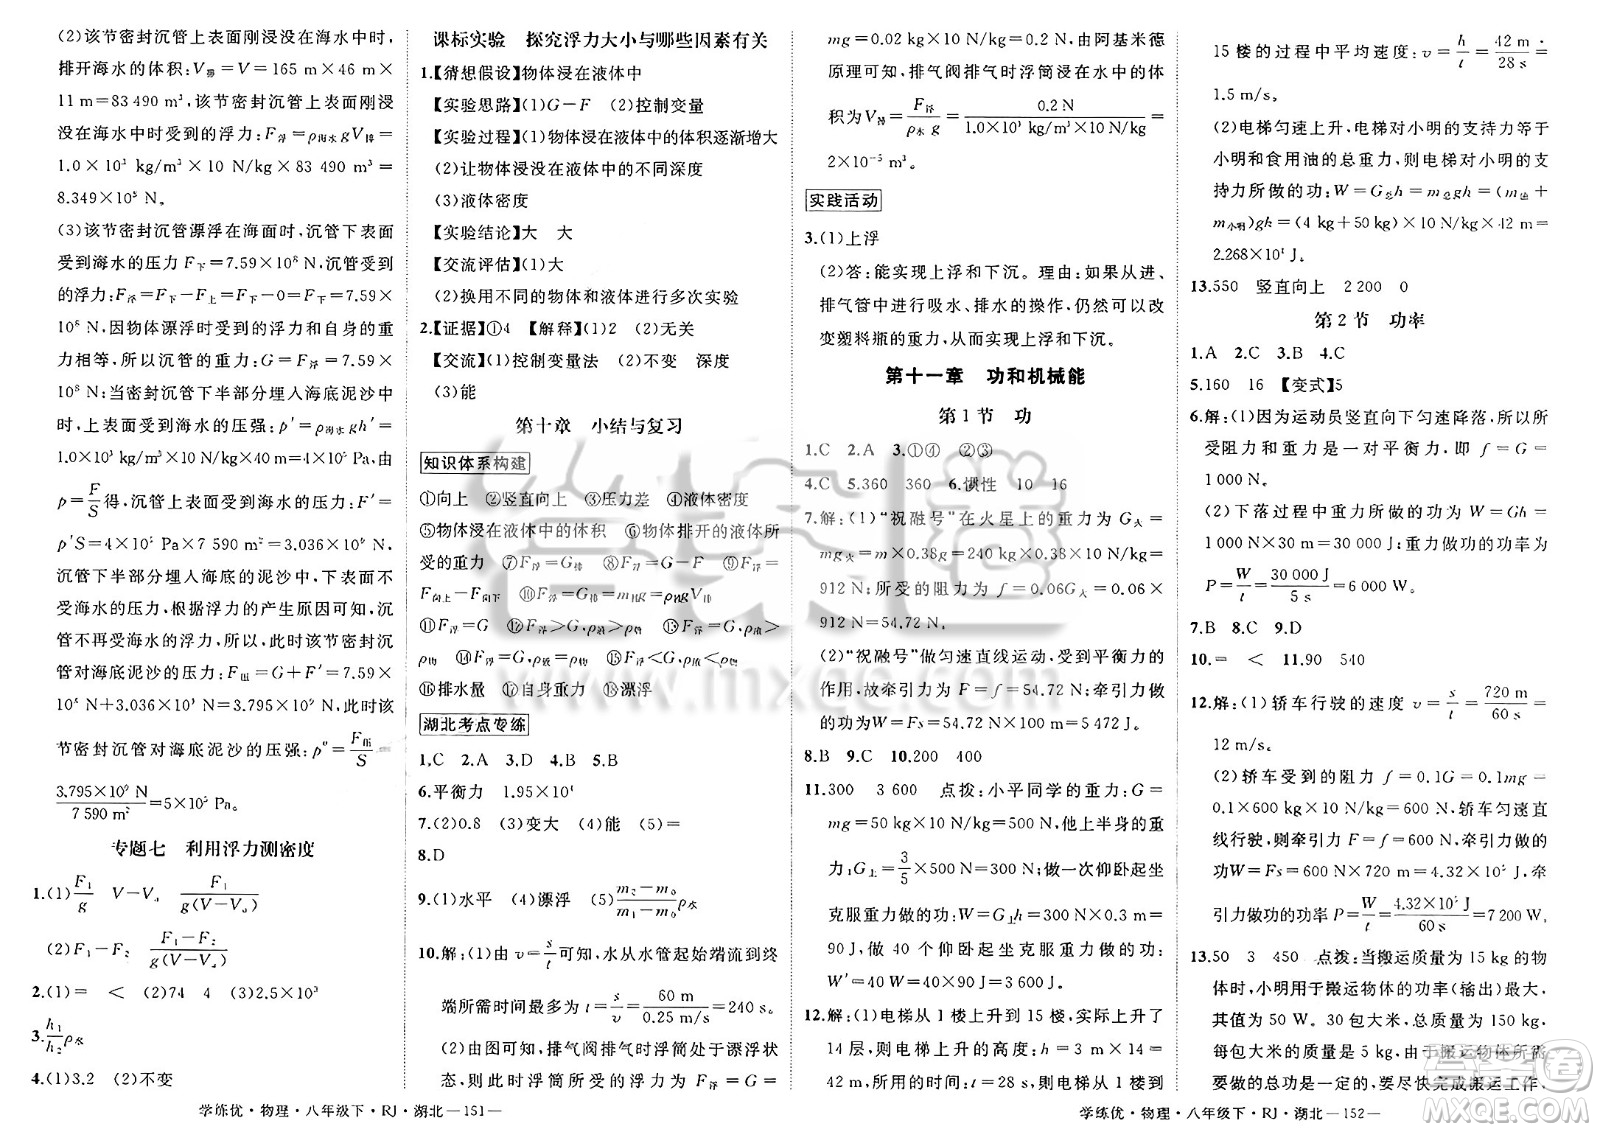 (2)该节密封沉管上表面刚浸没在海水中时，
排开海水的体积：V排＝V＝165 m×46 m×
11 m＝83 490 m³，该节密封沉管上表面刚浸
没在海水中时受到的浮力：F浮＝ρ海水gV排＝
1.0×10³ kg/m³×10 N/kg×83 490 m³＝
8.349×10⁸ N。
(3)该节密封沉管漂浮在海面时，沉管下表面
受到海水的压力F下＝7.59×10⁸ N，沉管受到
的浮力：F浮＝F下－F上＝F下－0＝7.59×
10⁸ N，因物体漂浮时受到的浮力和自身的重
力相等，所以沉管的重力：G＝F浮＝7.59×
10⁸ N；当密封沉管下半部分埋入海底泥沙中
时，上表面受到海水的压强：p′＝ρ海水gh′＝
1.0×10³ kg/m³×10 N/kg×40 m＝4×10⁵ Pa，由
p＝F/S得，沉管上表面受到海水的压力：F′＝
p′S＝4×10⁵ Pa×7 590 m²＝3.036×10⁹ N，
沉管下半部分埋入海底的泥沙中，下表面没有
受海水的压力，根据浮力的产生原因可知，沉
管不再受海水的浮力，所以，此时该节密封沉
管对海底泥沙的压力：F压＝G＋F′＝7.59×
10⁸ N＋3.036×10⁹ N＝3.795×10⁹ N，此时该
节密封沉管对海底泥沙的压强：p″＝F压/S＝
3.795×10⁹ N/7 590 m²＝5×10⁵ Pa。
专题七　利用浮力测密度
1.(1)F₁/g　V－V₀　F₁/g(V－V₀)
(2)F₁－F₂　F₁－F₂/g(V－V₀)
2.(1)＝　＜　(2)74　4　(3)2.5×10³
3.h₁/h₂ρ水
4.(1)3.2　(2)不变
课标实验　探究浮力大小与哪些因素有关
1.【猜想假设】物体浸在液体中
【实验思路】(1)G－F　(2)控制变量
【实验过程】(1)物体浸在液体中的体积逐渐增大
(2)让物体浸没在液体中的不同深度
(3)液体密度
【实验结论】大　大
【交流评估】(1)大
(2)换用不同的物体和液体进行多次实验
2.【证据】①4　【解释】(1)2　(2)无关
【交流】(1)控制变量法　(2)不变　深度
(3)能
第十章　小结与复习
知识体系构建
①向上　②竖直向上　③压力差　④液体密度
⑤物体浸在液体中的体积　⑥物体排开的液体所
受的重力　⑦F浮＝G排　⑧F浮＝G－F　⑨F浮＝
F向上－F向下　⑩F浮＝G排＝m排g＝ρ液gV排
⑪F浮＝G　⑫F浮＞G，ρ液＞ρ物　⑬F浮＝G，ρ液＞
ρ物　⑭F浮＝G，ρ液＝ρ物　⑮F浮＜G，ρ液＜ρ物
⑯排水量　⑰自身重力　⑱漂浮
湖北考点专练
1.C　2.A　3.D　4.B　5.B
6.平衡力　1.95×10⁴
7.(2)0.8　(3)变大　(4)能　(5)＝
8.D
9.(1)水平　(4)漂浮　(5)m₂－m₀/m₁－m₀ρ水
10.解：(1)由v＝s/t可知，水从水管起始端流到终
端所需时间最多为t＝s/v＝60 m/0.25 m/s＝240 s。
(2)由图可知，排气阀排气时浮筒处于漂浮状
态，则此时浮筒所受的浮力为F浮＝G＝
mg＝0.02 kg×10 N/kg＝0.2 N，由阿基米德
原理可知，排气阀排气时浮筒浸在水中的体
积为V排＝F浮/ρ水g＝0.2 N/1.0×10³ kg/m³×10 N/kg＝
2×10⁻⁵ m³。
实践活动
3.(1)上浮
(2)答：能实现上浮和下沉。理由：如果从进、
排气管中进行吸水、排水的操作，仍然可以改
变塑料瓶的重力，从而实现上浮和下沉。
第十一章　功和机械能
第1节　功
1.C　2.A　3.①④　②③
4.C　5.360　360　6.惯性　10　16
7.解：(1)“祝融号”在火星上的重力为G火＝
mg火＝m×0.38g＝240 kg×0.38×10 N/kg＝
912 N；所受的阻力为f＝0.06G火＝0.06×
912 N＝54.72 N。
(2)“祝融号”做匀速直线运动，受到平衡力的
作用，故牵引力为F＝f＝54.72 N；牵引力做
的功为W＝Fs＝54.72 N×100 m＝5 472 J。
8.B　9.C　10.200　400
11.300　3 600　点拨：小平同学的重力为：G＝
mg＝50 kg×10 N/kg＝500 N，他上半身的重
力G上＝3/5×500 N＝300 N；做一次仰卧起坐
克服重力做的功：W＝G上h＝300 N×0.3 m＝
90 J，做40个仰卧起坐克服重力做的功：
W′＝40 W＝40×90 J＝3 600 J。
12.解：(1)电梯从1楼上升到15楼，实际上升了
14层，则电梯上升的高度：h＝3 m×14＝
42 m，所用的时间：t＝28 s，则小明从1楼到
15楼的过程中平均速度：v＝h/t＝42 m/28 s＝
1.5 m/s。
(2)电梯匀速上升，电梯对小明的支持力等于
小明和食用油的总重力，则电梯对小明的支
持力所做的功：W＝G总h＝m总gh＝(m油＋
m小明)gh＝(4 kg＋50 kg)×10 N/kg×42 m＝
2.268×10⁴ J。
13.550　竖直向上　2 200　0
第2节　功率
1.A　2.C　3.B　4.C
5.160　16　【变式】5
6.解：(1)因为运动员竖直向下匀速降落，所以所
受阻力和重力是一对平衡力，即f＝G＝
1 000 N。
(2)下落过程中重力所做的功为W＝Gh＝
1 000 N×30 m＝30 000 J；重力做功的功率为
P＝W/t＝30 000 J/5 s＝6 000 W。
7.B　8.C　9.D
10.＝　＜　11.90　540
12.解：(1)轿车行驶的速度v＝s/t＝720 m/60 s＝
12 m/s。
(2)轿车受到的阻力f＝0.1G＝0.1mg＝
0.1×600 kg×10 N/kg＝600 N，轿车匀速直
线行驶，则牵引力F＝f＝600 N，牵引力做的
功W＝Fs＝600 N×720 m＝4.32×10⁵ J，牵
引力做功的功率P＝W/t＝4.32×10⁵ J/60 s＝7 200 W。
13.50　3　450　点拨：当搬运质量为15 kg的物
体时，小明用于搬运物体的功率（输出）最大，
其值为50 W。30包大米，总质量为150 kg，
每包大米的质量是5 kg，由于搬运物体所需
要的总功是一定的，要尽快完成搬运工作，
学练优·物理·八年级下·RJ·湖北—151—
学练优·物理·八年级下·RJ·湖北—152—
答案道
www.mxqe.com
答案圈
MXQE.COM